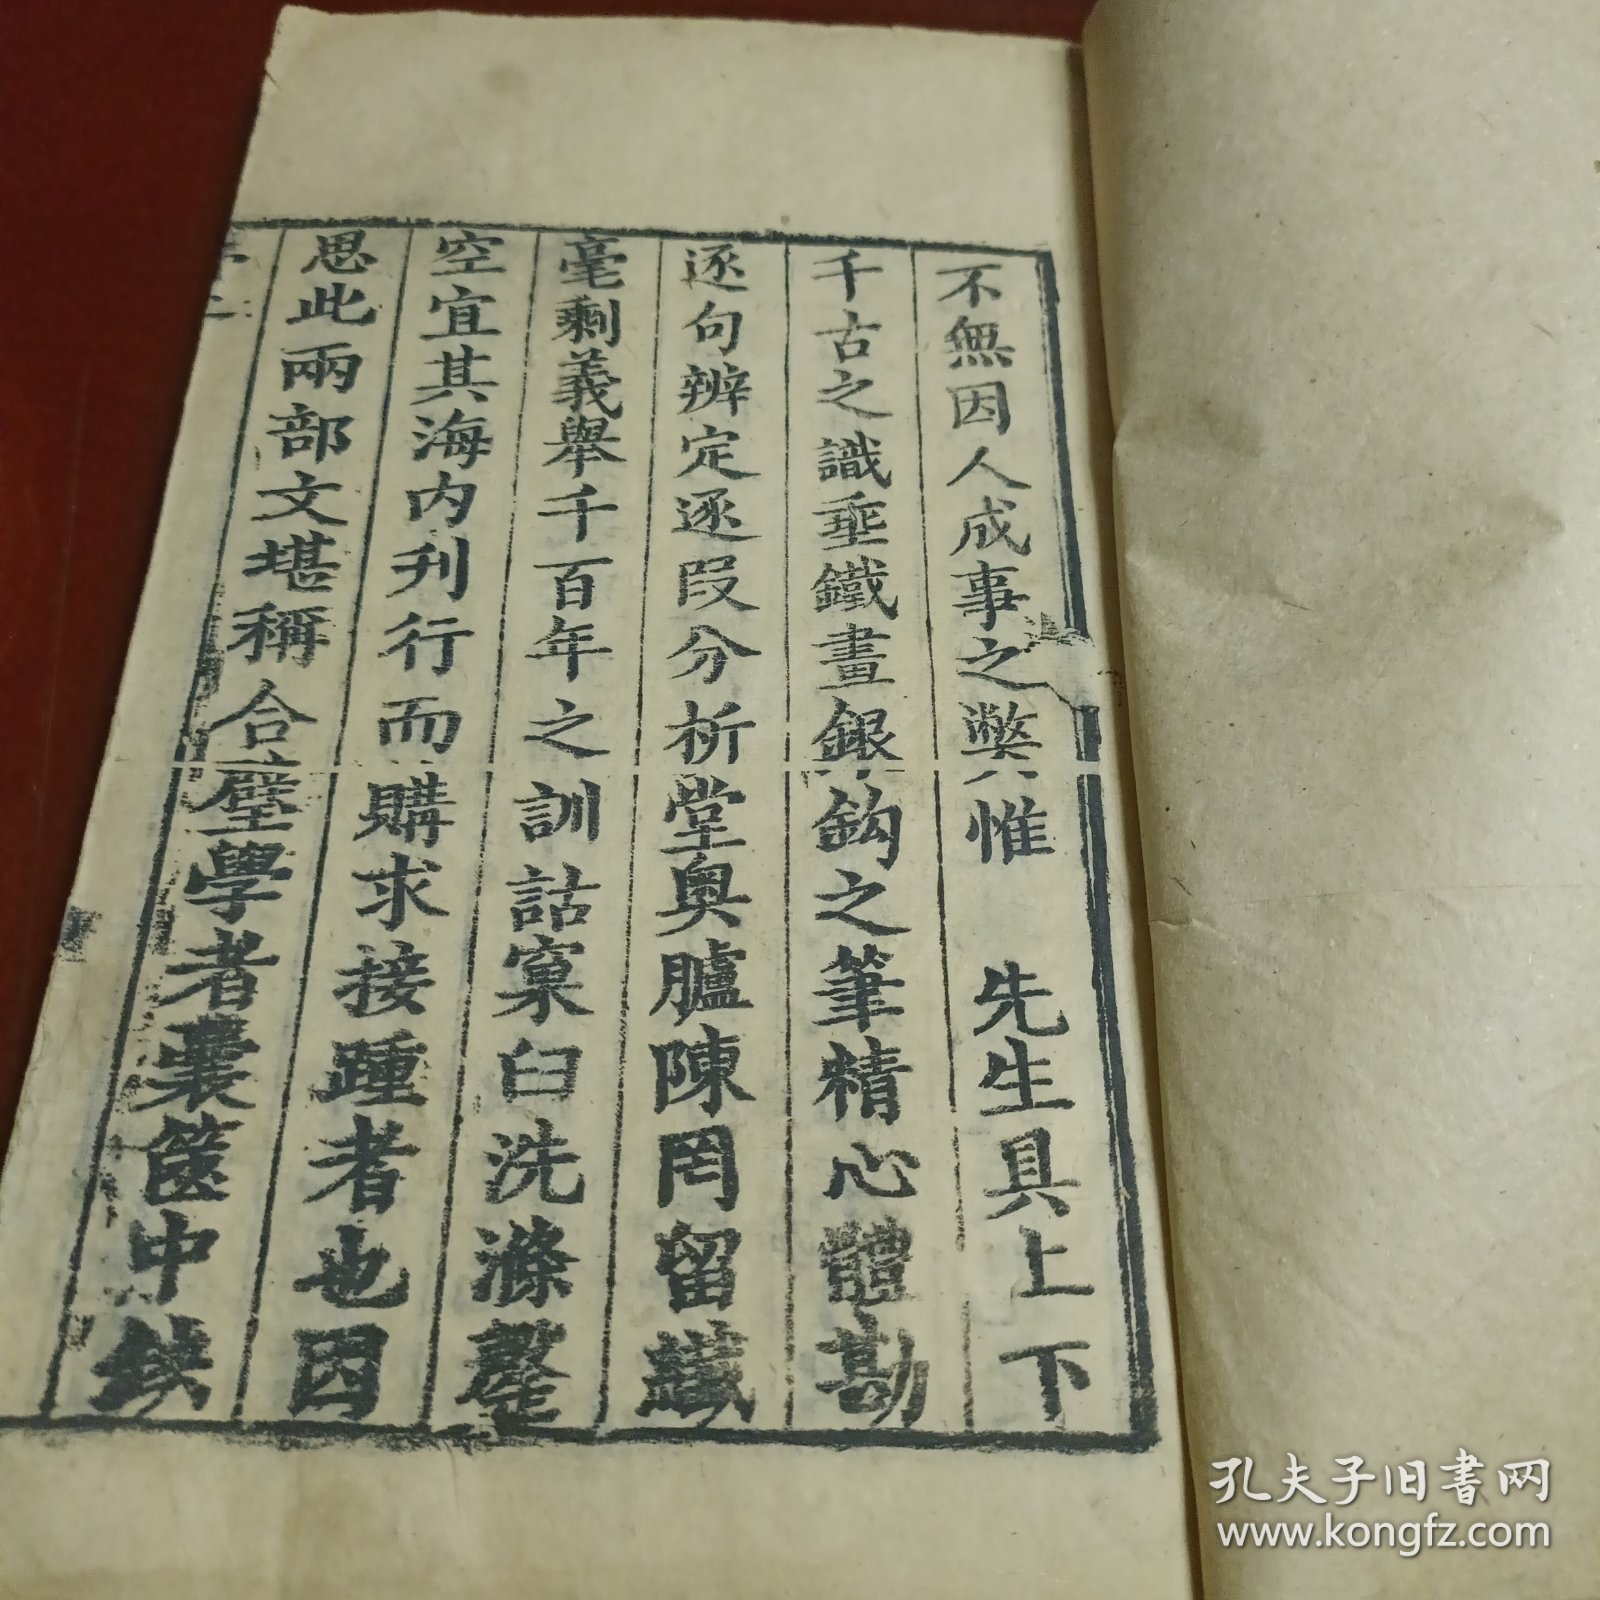 不無因人成事之獘惟　先生具上下
千古之識垂鐵畫銀鈎之筆精心體勘
逐句辨定逐段分析堂奥臚陳罔留纖
毫剩義舉千百年之訓詁窠臼洗滌罄
空宜其海内刋行而購求接踵者也因
思此兩部文堪稱合璧學者囊篋中缺
孔夫子旧书网
www.kongfz.com